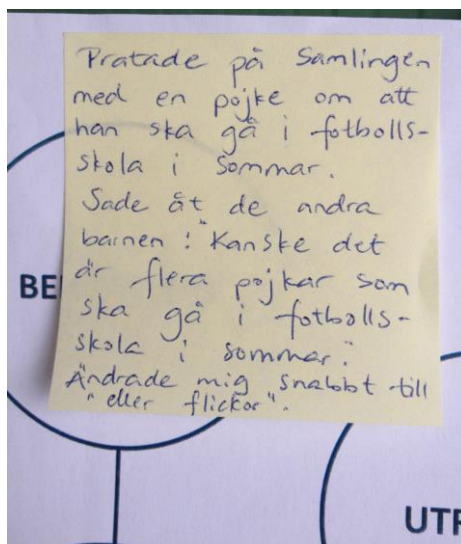 Pratade på Samlingen
med en pojke om att
han ska gå i fotbolls-
skola i sommar.
Sade åt de andra
barnen: "Kanske det
är flera pojkar som
ska gå i fotbolls-
skola i sommar."
Ändrade mig snabbt till
"eller flickor".
BE
UTF